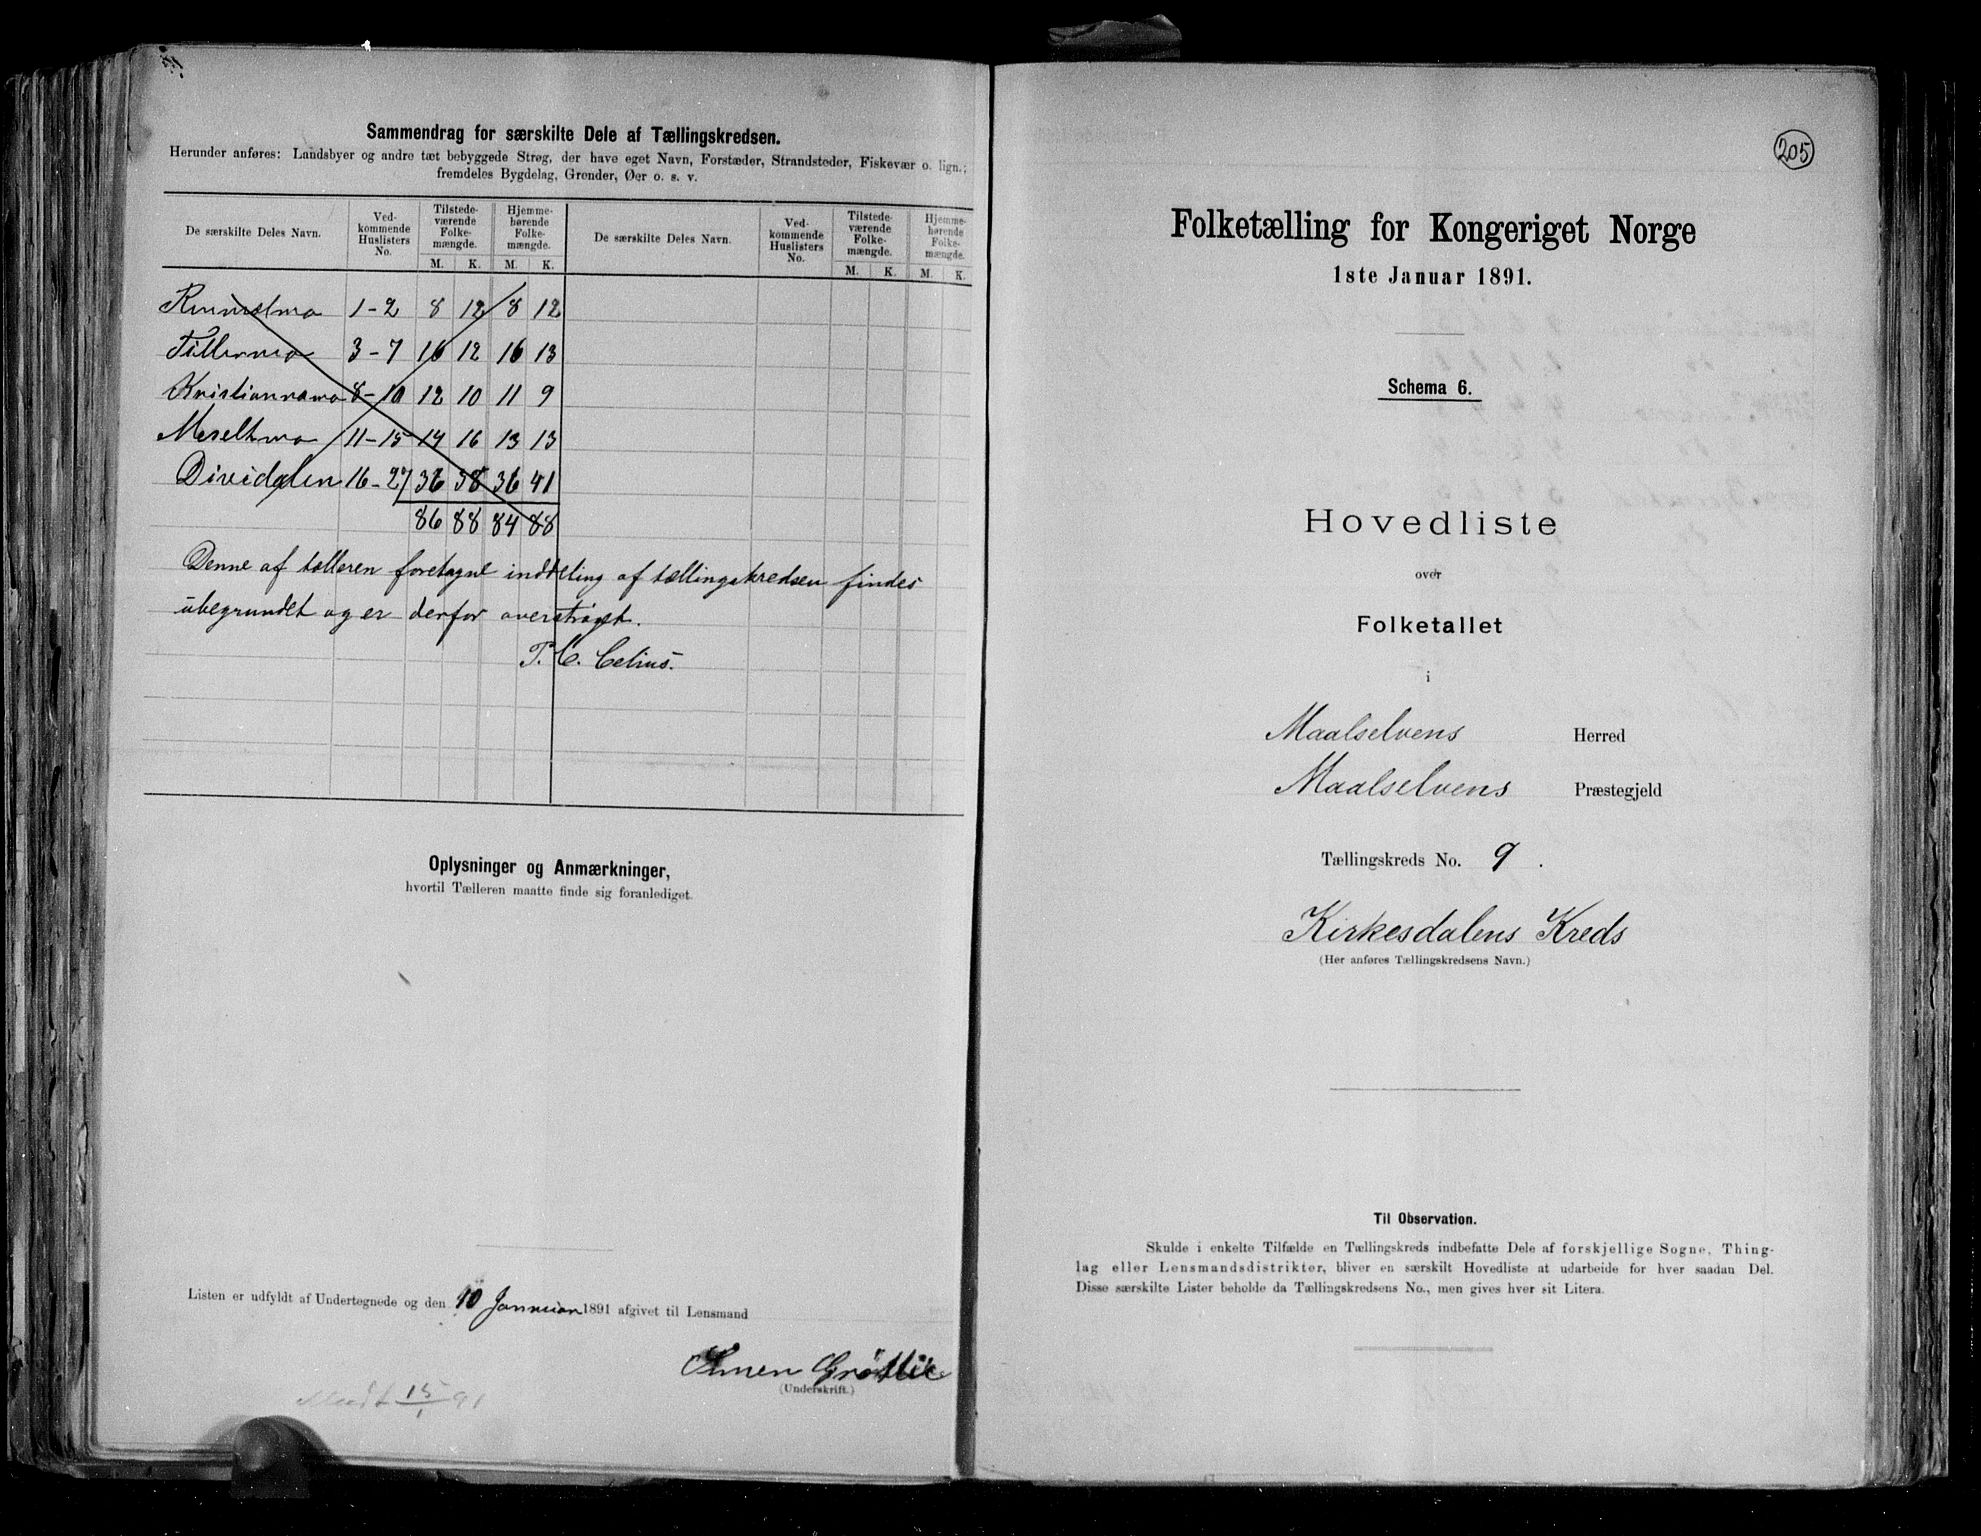 Sammendrag for særskilte Dele af Tællingskredsen.
Herunder anføres: Landsbyer og andre tæt bebyggede Strøg, der have eget Navn, Forstæder, Strandsteder, Fiskevær o. lign.;
fremdeles Bygdelag, Grender, Øer o. s. v.
De særskilte Deles Navn. Ved-kommende Huslisters No. Tilstede-værende Folke-mængde. Hjemme-hørende Folke-mængde. De særskilte Deles Navn. Ved-kommende Huslisters No. Tilstede-værende Folke-mængde. Hjemme-hørende Folke-mængde.
M. K. M. K. M. K. M. K.
1-2 8 12 8 12
3-7 16 12 16 13
8-10 12 10 11 9
11-15 14 16 13 13
Dividalen 16-27 36 38 36 41
86 88 84 88
Denne af tælleren foretagne inddeling af tællingskredsen findes
ubegrundet og er derfor overstrøget.
P. C. Celius.
Oplysninger og Anmærkninger,
hvortil Tælleren maatte finde sig foranlediget.
Listen er udfyldt af Undertegnede og den 10 Januar 1891 afgivet til Lensmand
(Underskrift.)
15/1 91
205
Folketælling for Kongeriget Norge
1ste Januar 1891.
Schema 6.
Hovedliste
over
Folketallet
i
Maalselvens Herred
Maalselvens Præstegjeld
Tællingskreds No. 9.
Kirkesdalens Kreds
(Her anføres Tællingskredsens Navn.)
Til Observation.
Skulde i enkelte Tilfælde en Tællingskreds indbefatte Dele af forskjellige Sogne, Thing-
lag eller Lensmandsdistrikter, bliver en særskilt Hovedliste at udarbeide for hver saadan Del.
Disse særskilte Lister beholde da Tællingskredsens No., men gives hver sit Litera.